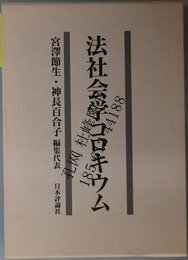 法社会学コロキウム
宮澤節生・神長百合子 編集代表
日本評論社